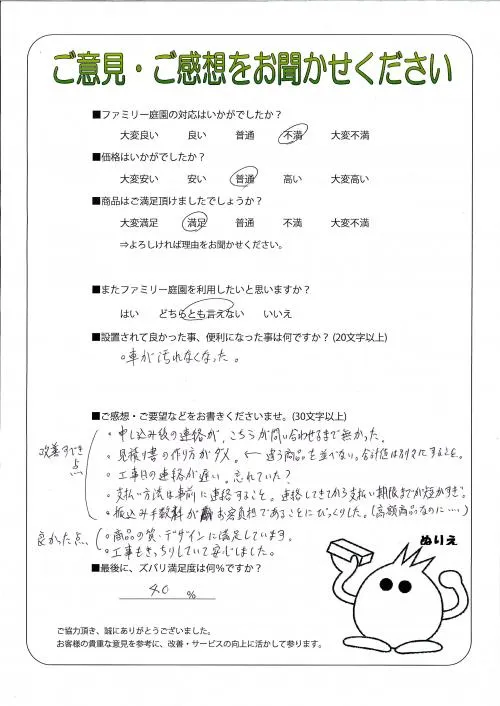 ご意見・ご感想をお聞かせください
■ファミリー庭園の対応はいかがでしたか？
大変良い 良い 普通 不満 大変不満
■価格はいかがでしたか？
大変安い 安い 普通 高い 大変高い
■商品はご満足頂けましたでしょうか？
大変満足 満足 普通 不満 大変不満
⇒よろしければ理由をお聞かせください。
■またファミリー庭園を利用したいと思いますか？
はい どちらとも言えない いいえ
■設置されて良かった事、便利になった事は何ですか？ (20文字以上)
○車が汚れなくなった。
■ご感想・ご要望などをお書きくださいませ。(30文字以上)
改善すべき点
・申し込み後の連絡が、こちらが問い合わせるまで無かった。
・見積り書の作り方がダメ。← 違う商品を並べない。合計値は別々にすること。
・工事日の連絡が遅い。忘れていた？
・支払い方法は事前に連絡すること。連絡してきてから支払い期限までが短かすぎ。
・振込み手数料がお客負担であることにびっくりした。(高額商品なのに…)
良かった点
・商品の質・デザインに満足しています。
・工事もきっちりしていて安心しました。
■最後に、ズバリ満足度は何％ですか？
40 %
ぬりえ
ご協力頂き、誠にありがとうございました。
お客様の貴重な意見を参考に、改善・サービスの向上に活かして参ります。